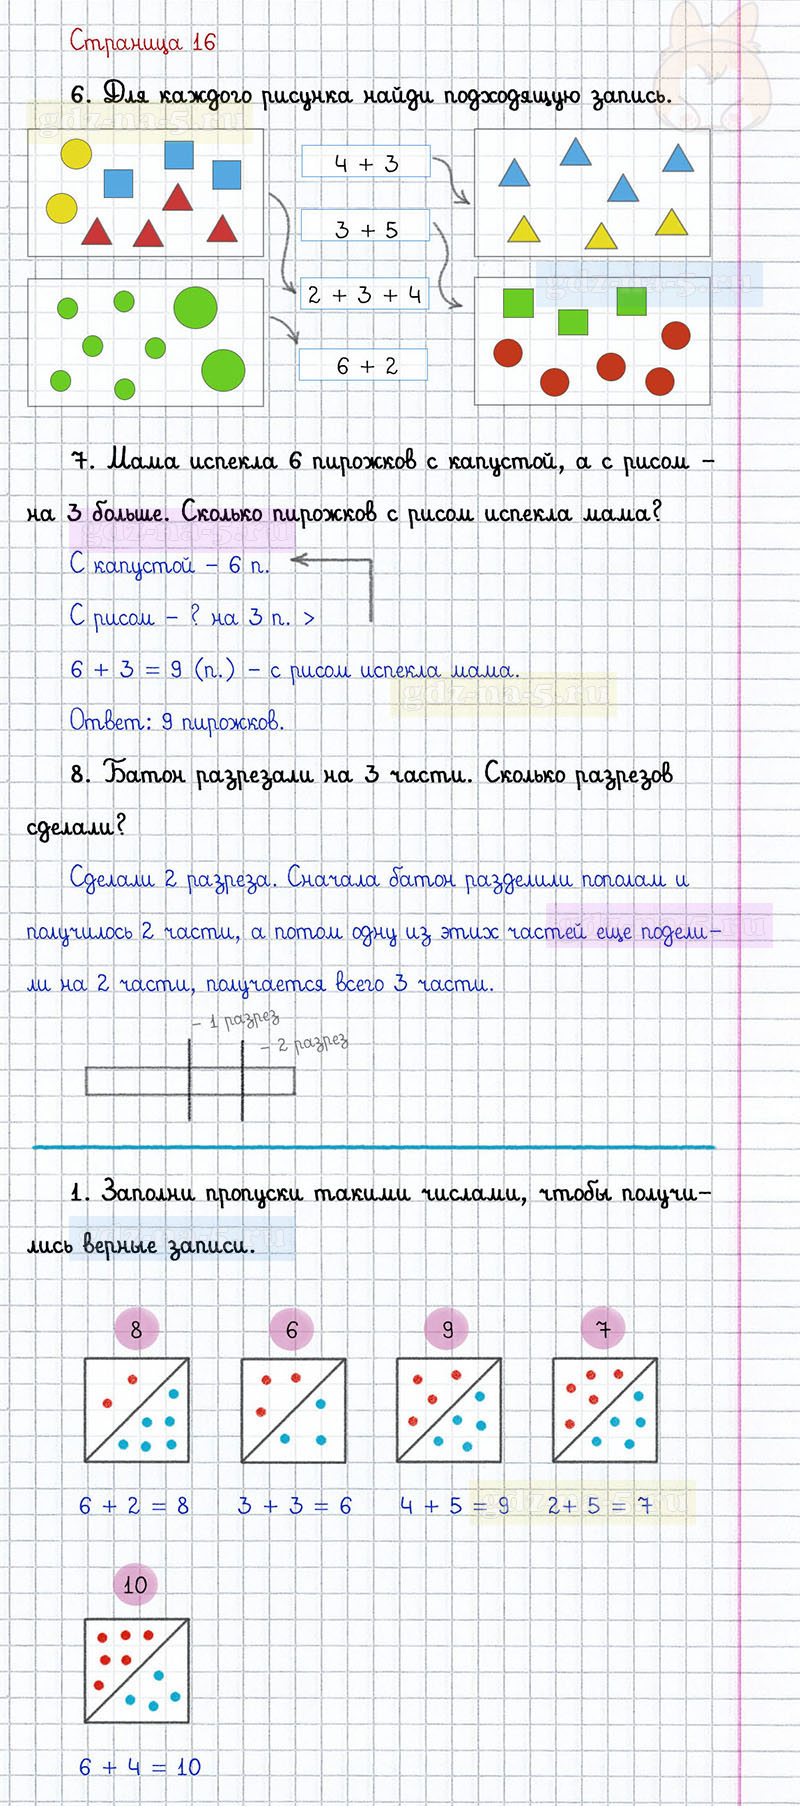 Страница 16
6. Для каждого рисунка найди подходящую запись.
gdz-na-5.ru
4 + 3
3 + 5
2 + 3 + 4
gdz-na-5.ru
6 + 2
7. Мама испекла 6 пирожков с капустой, а с рисом –
на 3 больше. Сколько пирожков с рисом испекла мама?
gdz-na-5.ru
С капустой – 6 п.
С рисом – ? на 3 п. >
6 + 3 = 9 (п.) – с рисом испекла мама.
gdz-na-5.ru
Ответ: 9 пирожков.
8. Батон разрезали на 3 части. Сколько разрезов
сделали?
Сделали 2 разреза. Сначала батон разделили пополам и
получилось 2 части, а потом одну из этих частей еще подели–
gdz-na-5.ru
ли на 2 части, получается всего 3 части.
– 1 разрез
– 2 разрез
1. Заполни пропуски такими числами, чтобы получи–
лись верные записи.
gdz-na-5.ru
8 6 9 7
6 + 2 = 8 3 + 3 = 6 4 + 5 = 9 2+ 5 = 7
gdz-na-5.ru
10
6 + 4 = 10